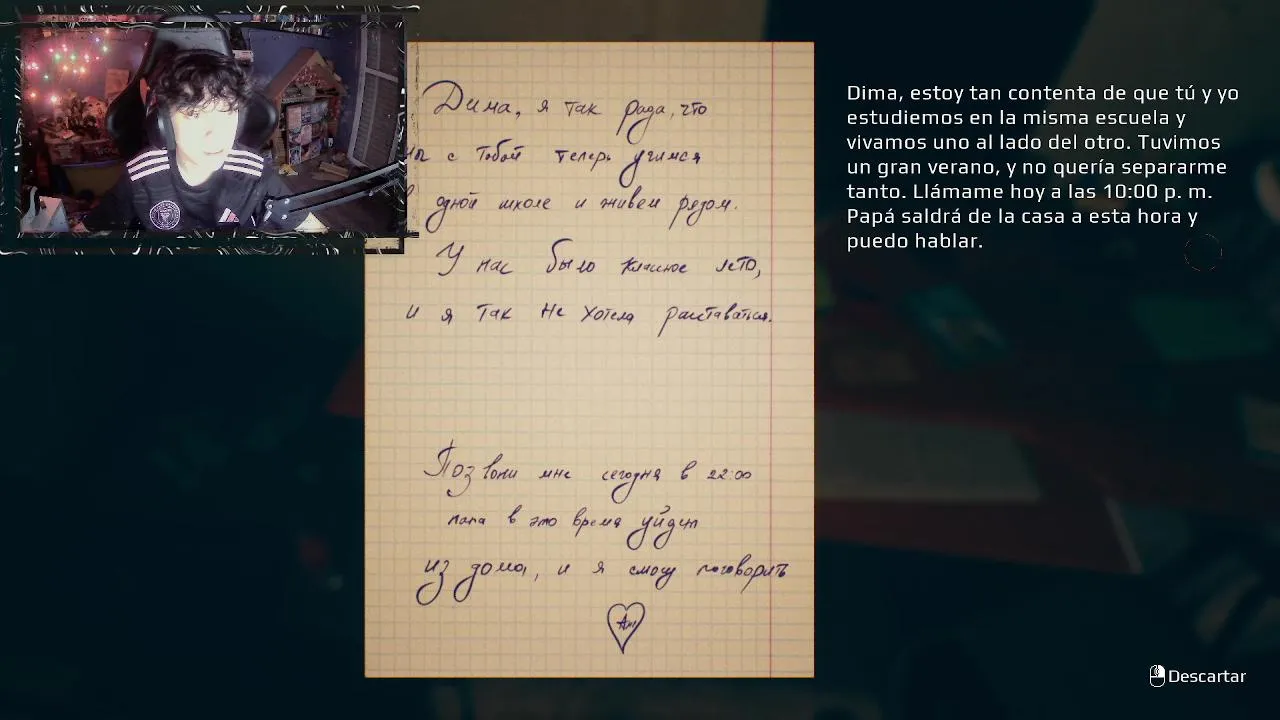 Дима, я так рада, что
мы с тобой теперь учимся
в одной школе и живем рядом.
У нас было классное лето,
и я так не хотела расставаться.
Позвони мне сегодня в 22:00
папа в это время уйдет
из дома, и я смогу поговорить
Dima, estoy tan contenta de que tú y yo
estudiemos en la misma escuela y
vivamos uno al lado del otro. Tuvimos
un gran verano, y no quería separarme
tanto. Llámame hoy a las 10:00 p. m.
Papá saldrá de la casa a esta hora y
puedo hablar.
Descartar